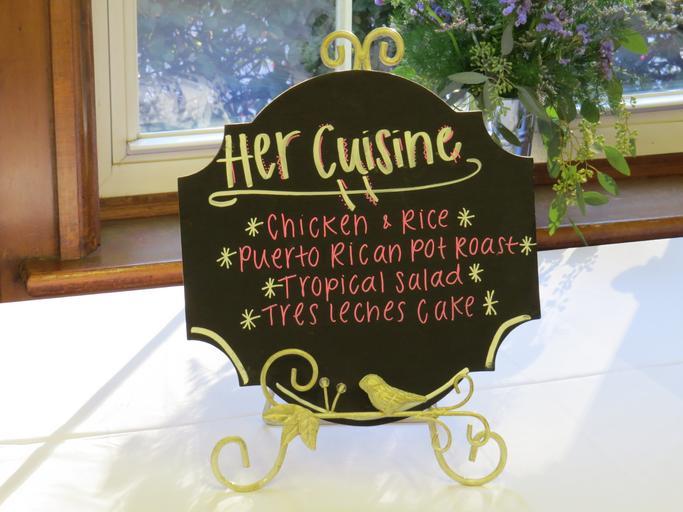 Her Cuisine
Chicken & Rice
Puerto Rican Pot Roast
Tropical Salad
Tres Leches Cake